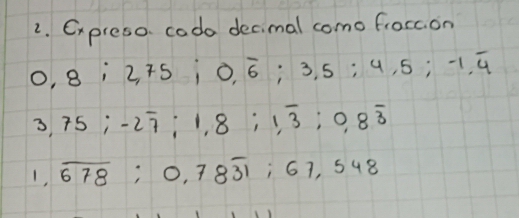 2. Expreso cada decimal como fracción
0,8 ; 2,75 ; 0,6̅ ; 3,5 ; 4,5 ; -1,4̅
3,75 ; -27̅ ; 1,8 ; 1,3̅ ; 0,83̅
1,6̅7̅8̅ ; 0,783̅1̅ ; 67,548